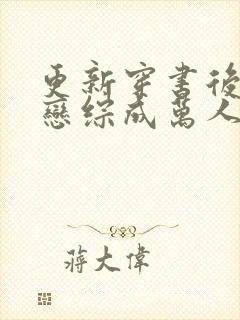 更新穿書後
戀綜成萬人
蔣大偉